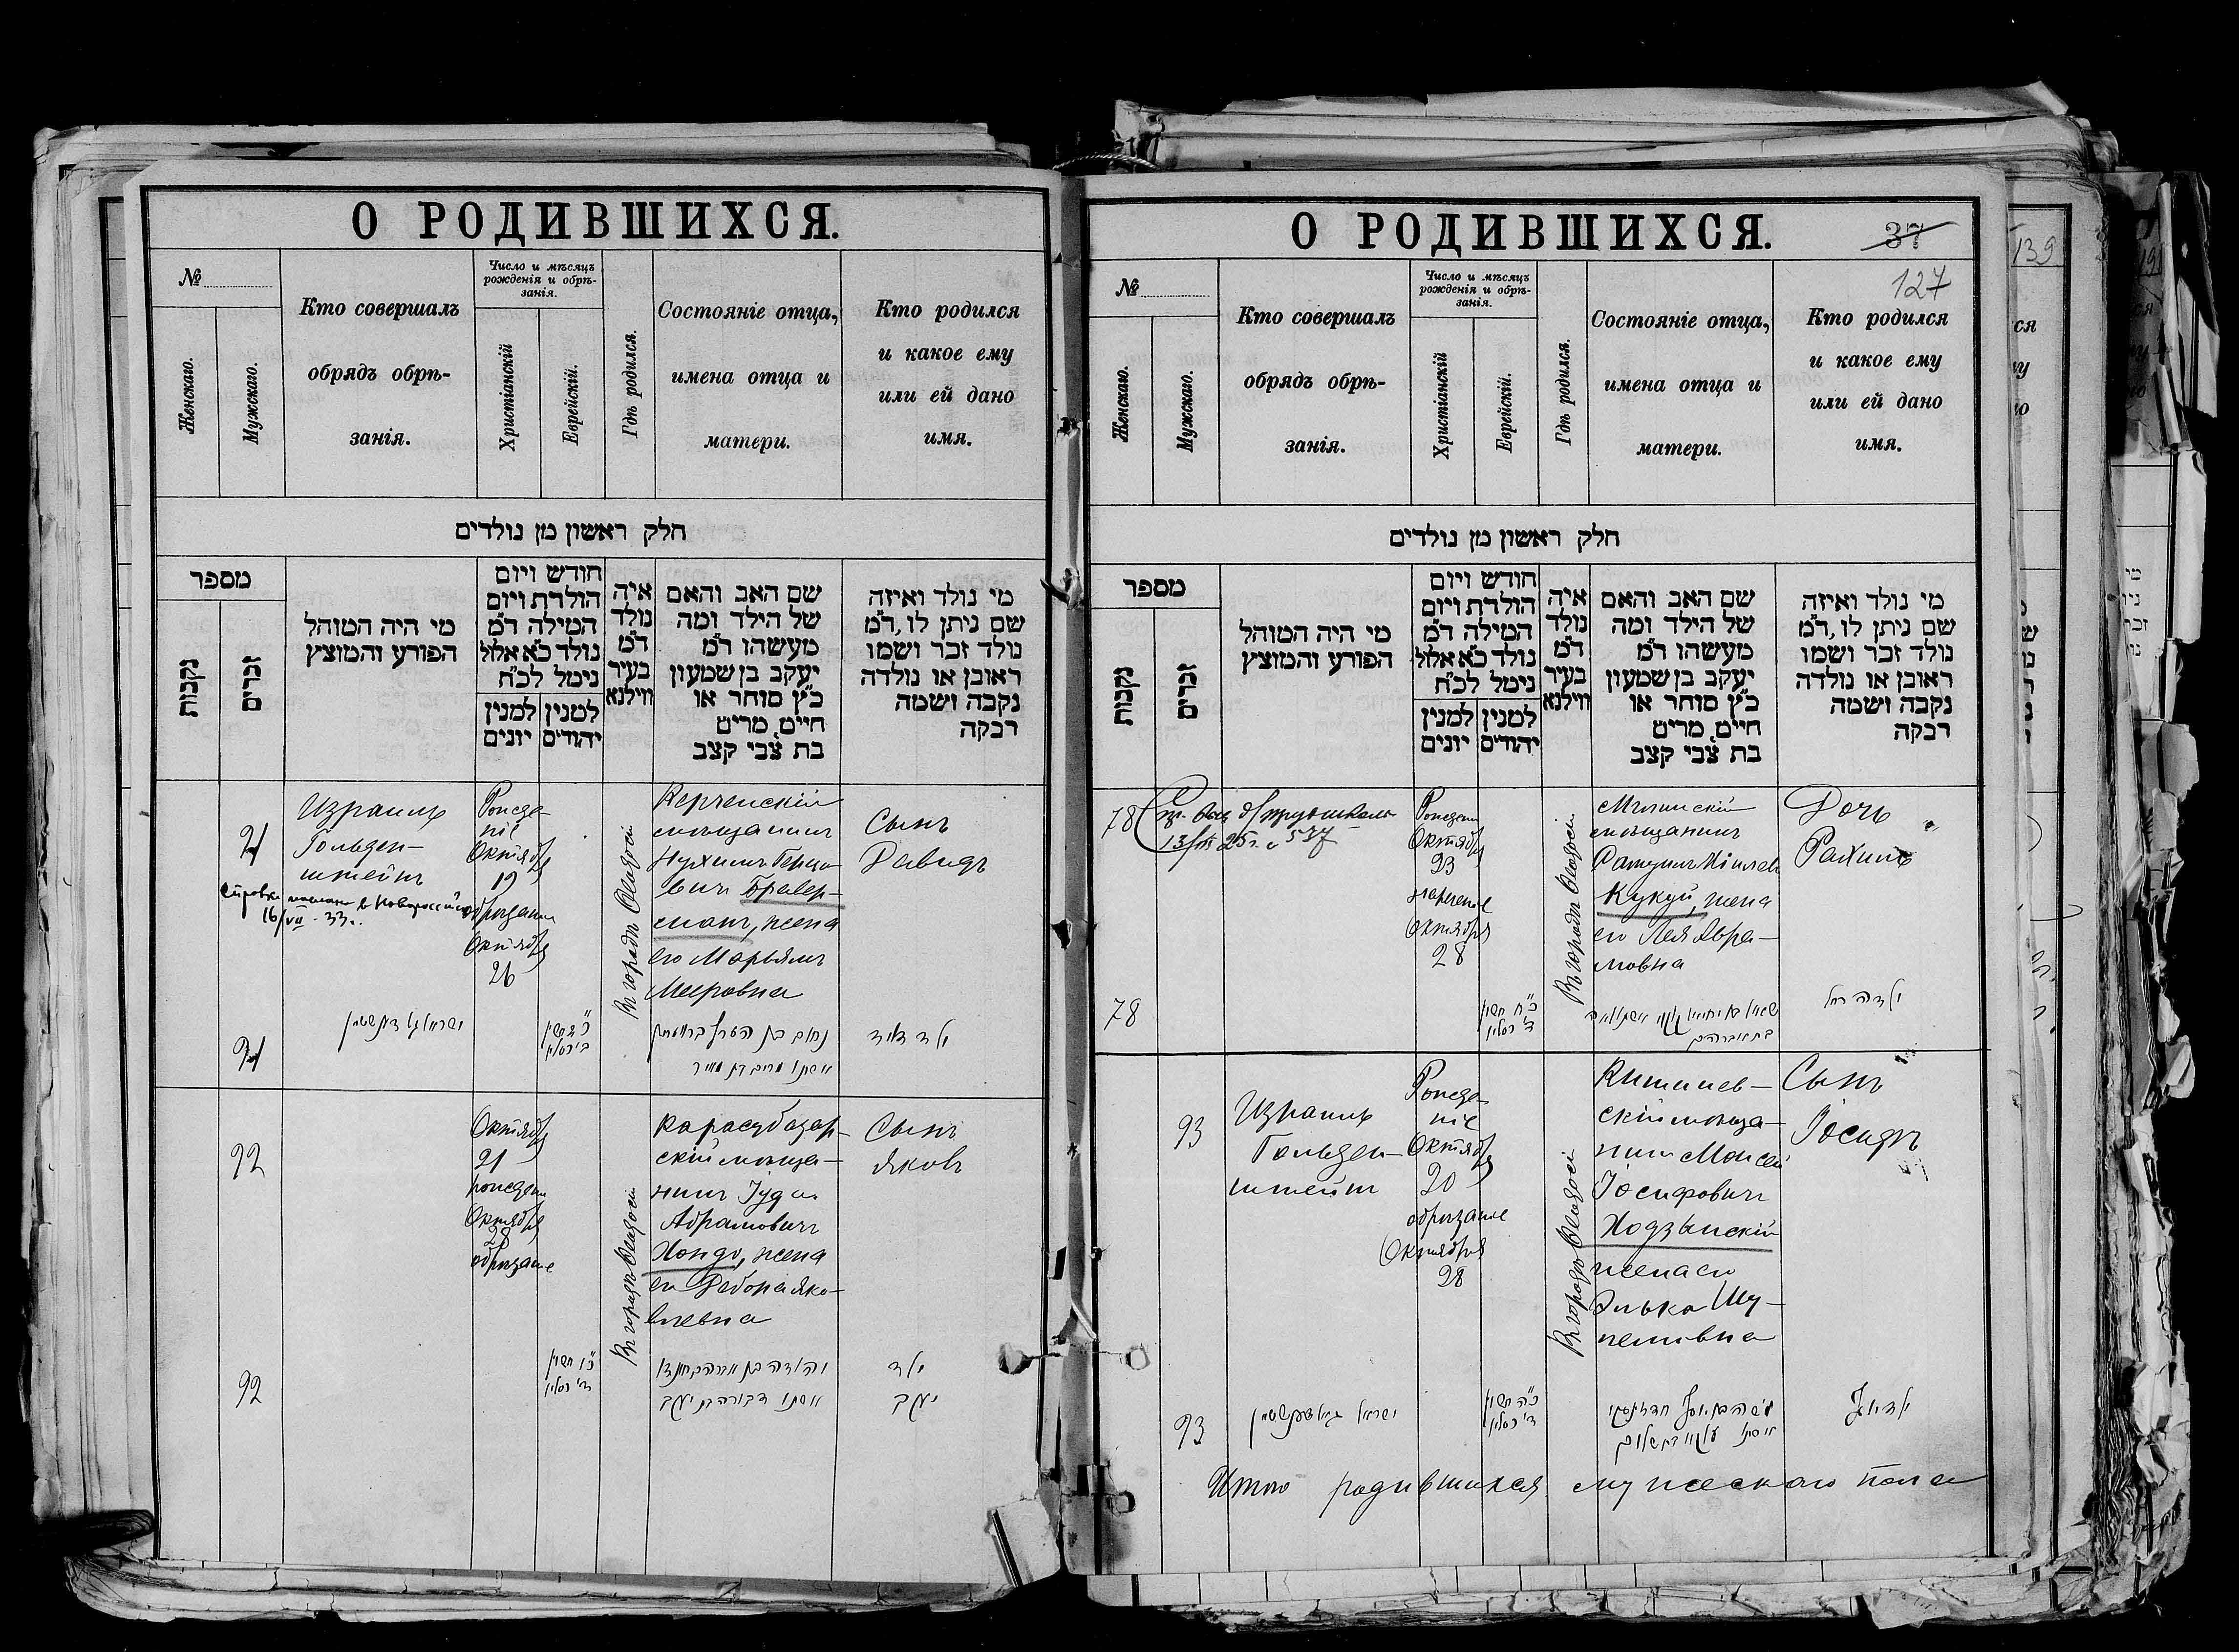 О РОДИВШИХСЯ.
№
Женскаго.
Мужскаго.
Кто совершалъ
обрядъ обрѣ-
занія.
Число и мѣсяцъ
рожденія и обрѣ-
занія.
Христіанскій
Еврейскій.
Гдѣ родился.
Состояніе отца,
имена отца и
матери.
Кто родился
и какое ему
или ей дано
имя.
חלק ראשון מן נולדים
מספר
נקבות
זכרים
מי היה המוהל
הפורע והמוצץ
חודש ויום
הולדת ויום
המילה ד״מ
נולד כ״א אלול
נימל לכ״ח
למנין יהודים
למנין יונים
איה
נולד
ד״מ
בעיר
ווילנא
שם האב והאם
של הילד ומה
מעשהו ד״מ
יעקב בן שמעון
כ״ץ סוחר או
חייט, מרים
בת צבי קצב
מי נולד ואיזה
שם ניתן לו, ד״מ
נולד זכר ושמו
ראובן או נולדה
נקבה ושמה
רבקה
91
Израиль
Гольден-
штейнъ
16/VII - 33г.
Рожде-
ніе
Октября
19
обрѣзаніе
Октября
26
Въ городѣ Ѳеодосіи
Керченскій
мѣщанинъ
Нухимъ Герцо-
вичъ Бравер-
манъ, жена
его Марьямъ
Мееровна
Сынъ
Давидъ
91
ישראל גאלדענשטיין
ילד דוד
92
Октября
21
рожденіе
Октября
28
обрѣзаніе
Въ городѣ Ѳеодосіи
Карасубазар-
скій мѣща-
нинъ Іуда
Абрамовичъ
Хондо, жена
его Дебора Яко-
влевна
Сынъ
Яковъ
92
ואשתו דבורה בת יעקב
ילד
יעקב
О РОДИВШИХСЯ.
37
127
№
Женскаго.
Мужскаго.
Кто совершалъ
обрядъ обрѣ-
занія.
Число и мѣсяцъ
рожденія и обрѣ-
занія.
Христіанскій
Еврейскій.
Гдѣ родился.
Состояніе отца,
имена отца и
матери.
Кто родился
и какое ему
или ей дано
имя.
חלק ראשון מן נולדים
מספר
נקבות
זכרים
מי היה המוהל
הפורע והמוצץ
חודש ויום
הולדת ויום
המילה ד״מ
נולד כ״א אלול
נימל לכ״ח
למנין יהודים
למנין יונים
איה
נולד
ד״מ
בעיר
ווילנא
שם האב והאם
של הילד ומה
מעשהו ד״מ
יעקב בן שמעון
כ״ץ סוחר או
חייט, מרים
בת צבי קצב
מי נולד ואיזה
שם ניתן לו, ד״מ
נולד זכר ושמו
ראובן או נולדה
נקבה ושמה
רבקה
78
537
Рожденіе
Октября
23
нареченіе
Октября
28
Въ городѣ Ѳеодосіи
мѣщанинъ
Кукуй, жена
его Лея Абра-
мовна
Дочь
Рахиль
78
ילדה רחל
93
Израиль
Гольден-
штейнъ
Рожде-
ніе
Октября
20
обрѣзаніе
Октября
28
Въ городѣ Ѳеодосіи
Кишинев-
скій мѣща-
нинъ Моисей
Іосифовичъ
Ходзинскій
жена его
Сынъ
Іосифъ
93
ישראל גאלדענשטיין
ילד יוסף
Итого родившихся мужескаго пола
139